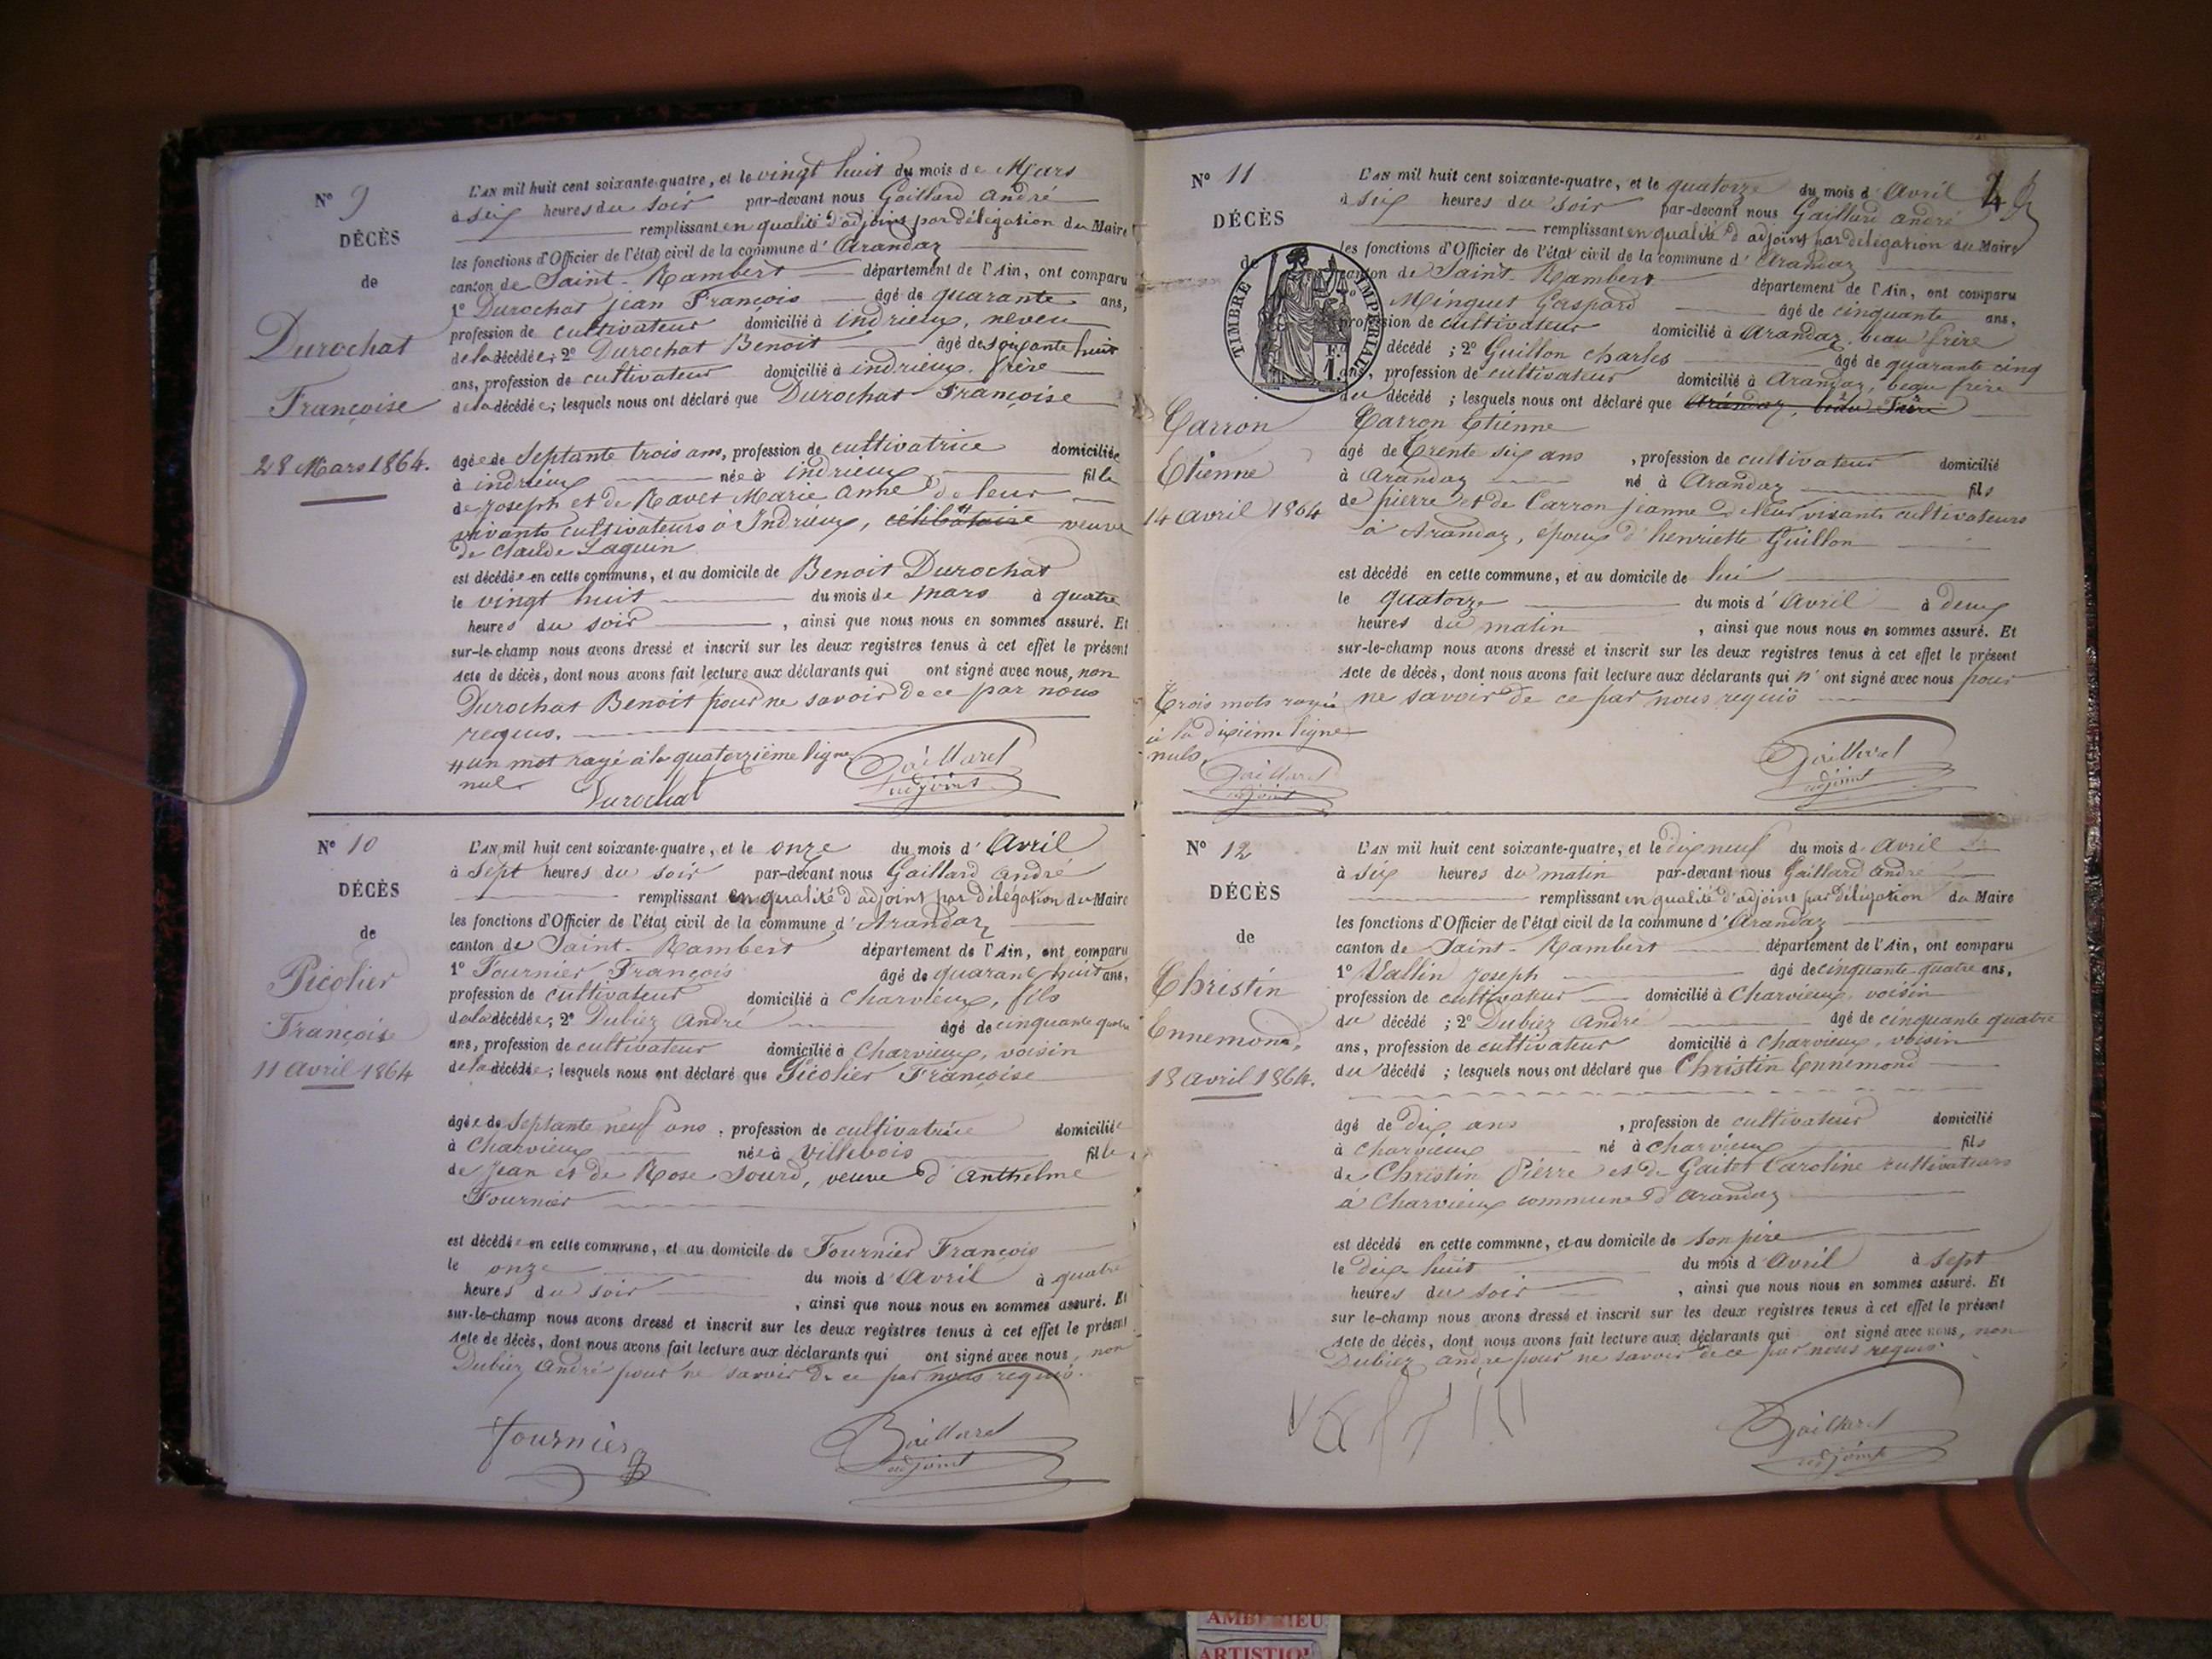 N° 9
DÉCÈS
de
Durochat
Françoise
28 Mars 1864.
L'AN mil huit cent soixante-quatre, et le vingt huit du mois de Mars
à six heures du soir par-devant nous Gaillard André
remplissant en qualité d'adjoint par délégation du Maire
les fonctions d'Officier de l'état civil de la commune d'Arandaz
canton de Saint-Rambert département de l'Ain, ont comparu
1° Durochat Jean François âgé de quarante ans,
profession de cultivateur domicilié à indrieux, neveu
de la décédée; 2° Durochat Benoit âgé de soixante huit
ans, profession de cultivateur domicilié à indrieux, frère
de la décédée; lesquels nous ont déclaré que Durochat Françoise
âgée de Septante trois ans, profession de cultivatrice domiciliée
à indrieux née à indrieux fille
de Joseph et de Ravet Marie Anne de leur
vivants cultivateurs à Indrieux, célibataire veuve
de Claude Laguin
est décédée en cette commune, et au domicile de Benoit Durochat
le vingt huit du mois de mars à quatre
heures du soir, ainsi que nous nous en sommes assuré. Et
sur-le-champ nous avons dressé et inscrit sur les deux registres tenus à cet effet le présent
Acte de décès, dont nous avons fait lecture aux déclarants qui ont signé avec nous, non
Durochat Benoit pour ne savoir de ce par nous
requis.
# un mot rayé à la quatorzième ligne
nul
Durochat
Gaillard
adjoint
N° 10
DÉCÈS
de
Picolier
Françoise
11 avril 1864
L'AN mil huit cent soixante-quatre, et le onze du mois d'Avril
à Sept heures du soir par-devant nous Gaillard André
remplissant en qualité d'adjoint par délégation du Maire
les fonctions d'Officier de l'état civil de la commune d'Arandaz
canton de Saint-Rambert département de l'Ain, ont comparu
1° Fournier François âgé de quarante huit ans,
profession de cultivateur domicilié à Charvieux, fils
de la décédée; 2° Dubiez André âgé de cinquante quatre
ans, profession de cultivateur domicilié à Charvieux, voisin
de la décédée; lesquels nous ont déclaré que Picolier Françoise
âgée de Septante neuf ans, profession de cultivatrice domiciliée
à Charvieux née à Villebois fille
de Jean et de Rose Sourd, veuve d'Anthelme
Fournier
est décédée en cette commune, et au domicile de Fournier François
le onze du mois d'Avril à quatre
heures du soir, ainsi que nous nous en sommes assuré. Et
sur-le-champ nous avons dressé et inscrit sur les deux registres tenus à cet effet le présent
Acte de décès, dont nous avons fait lecture aux déclarants qui ont signé avec nous, non
Dubiez André pour ne savoir de ce par nous requis.
fournier
Gaillard
adjoint
N° 11
DÉCÈS
de
TIMBRE IMPÉRIAL
Carron
Etienne
14 avril 1864
Trois mots rayés
à la dixième ligne
nuls
Gaillard
adjoint
4
L'AN mil huit cent soixante-quatre, et le quatorze du mois d'Avril
à six heures du soir par-devant nous Gaillard André
remplissant en qualité d'adjoint par délégation du Maire
les fonctions d'Officier de l'état civil de la commune d'Arandaz
canton de Saint-Rambert département de l'Ain, ont comparu
Minguet Gaspard âgé de cinquante ans,
profession de cultivateur domicilié à Arandaz, beau frère
décédé; 2° Guillon Charles âgé de quarante cinq
ans, profession de cultivateur domicilié à Arandaz, beau frère
du décédé; lesquels nous ont déclaré que Arandaz, beau frère
Carron Etienne
âgé de Trente six ans, profession de cultivateur domicilié
à Arandaz né à Arandaz fils
de pierre et de Carron jeanne de leur vivants cultivateurs
à Arandaz, époux d'henriette Guillon
est décédé en cette commune, et au domicile de lui
le quatorze du mois d'Avril à deux
heures du matin, ainsi que nous nous en sommes assuré. Et
sur-le-champ nous avons dressé et inscrit sur les deux registres tenus à cet effet le présent
Acte de décès, dont nous avons fait lecture aux déclarants qui n'ont signé avec nous pour
ne savoir de ce par nous requis
Gaillard
adjoint
N° 12
DÉCÈS
de
Christin
Ennemond,
18 avril 1864.
L'AN mil huit cent soixante-quatre, et le dix neuf du mois d'Avril
à six heures du matin par-devant nous Gaillard André
remplissant en qualité d'adjoint par délégation du Maire
les fonctions d'Officier de l'état civil de la commune d'Arandaz
canton de Saint-Rambert département de l'Ain, ont comparu
1° Vallin Joseph âgé de cinquante quatre ans,
profession de cultivateur domicilié à Charvieux, voisin
du décédé; 2° Dubiez André âgé de cinquante quatre
ans, profession de cultivateur domicilié à Charvieux, voisin
du décédé; lesquels nous ont déclaré que Christin Ennemond
âgé de dix ans, profession de cultivateur domicilié
à Charvieux né à Charvieux fils
de Christin Pierre et de Gaitet Caroline cultivateurs
à Charvieux commune d'Arandaz
est décédé en cette commune, et au domicile de son père
le dix-huit du mois d'Avril à sept
heures du soir, ainsi que nous nous en sommes assuré. Et
sur le-champ nous avons dressé et inscrit sur les deux registres tenus à cet effet le présent
Acte de décès, dont nous avons fait lecture aux déclarants qui ont signé avec nous, non
Dubiez andre pour ne savoir de ce par nous requis.
Gaillard
adjoint
AMBERIEU
ARTISTIQU